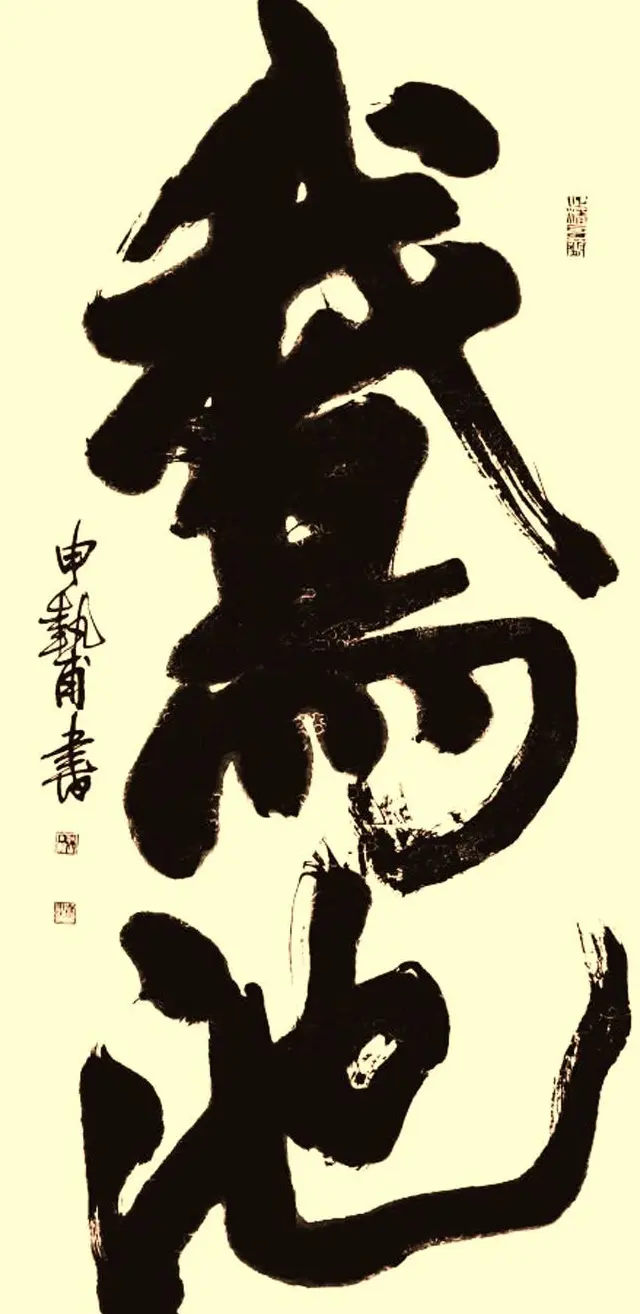 鵞池
申艺甫書